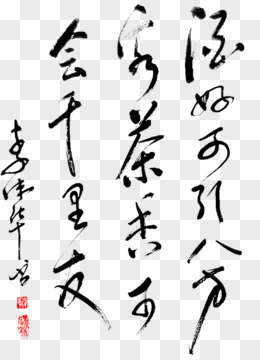 酒好可引八方
客茶香可
会千里友
李伟华书